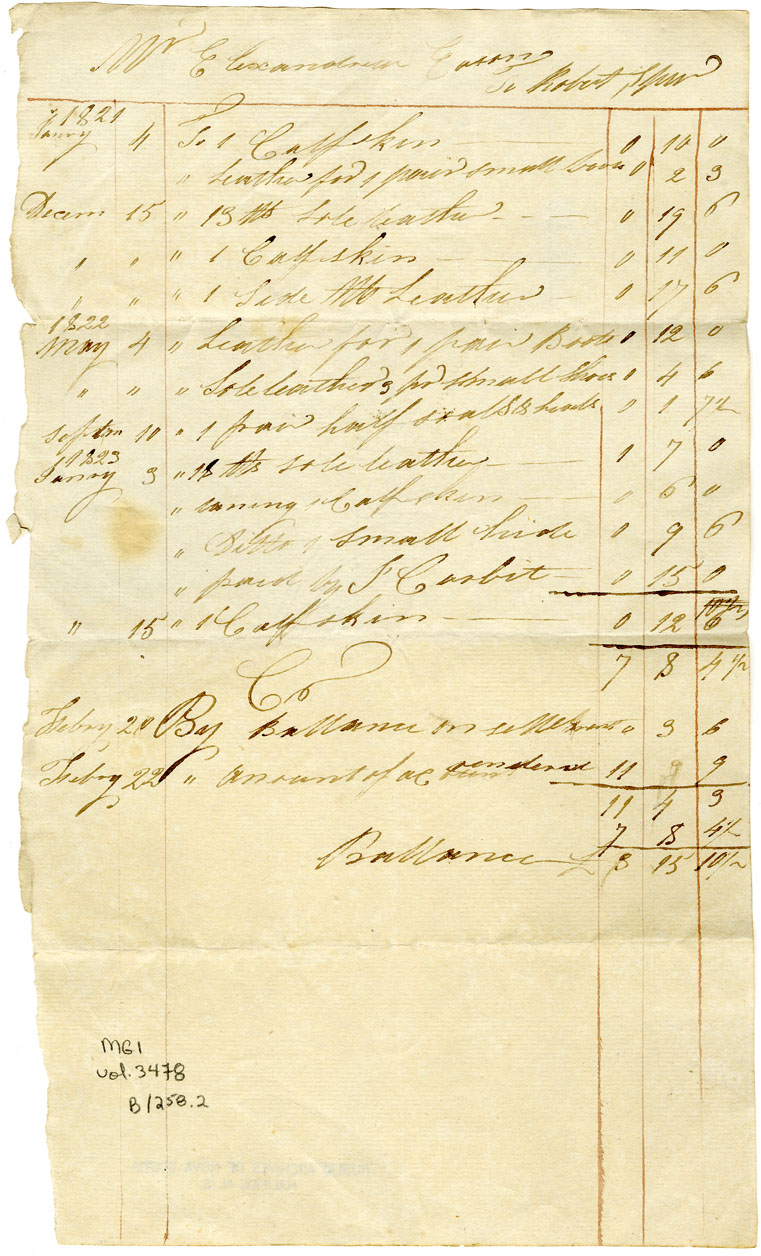 Mr Elexandrew Eason
To Robert Spur
1821
Janry 4 To 1 Calfskin 0 10 0
" Leather for 1 pair small 0 2 3
Decem 15 " 13 lbs Sole leather 0 19 6
" " " 1 Calfskin 0 11 0
" " " 1 Side Leather 0 17 6
1822
May 4 " Leather for 1 pair Boots 0 12 0
" " " Soleleather 3 pr small Shoes 0 4 6
Septm 10 " 1 pair half soals & heals 0 1 7½
1823
Janry 3 " 18 lbs sole leather 1 7 0
" taning 1 Calfskin 0 6 0
" Ditto 1 small hide 0 9 6
" paid by J Corbit 0 15 0
" 15 " 1 Calfskin 0 12 6
7 8 4½
Cr
Febry 20 By Ballance on settlement 0 3 6
Febry 22 " Amount of ac rendered 11 9
11 4 3
7 8 4½
Ballance £ 3 15 10½
MG1
vol. 3478
B/258.2
PUBLIC ARCHIVES OF NOVA SCOTIA
HALIFAX, N. S.